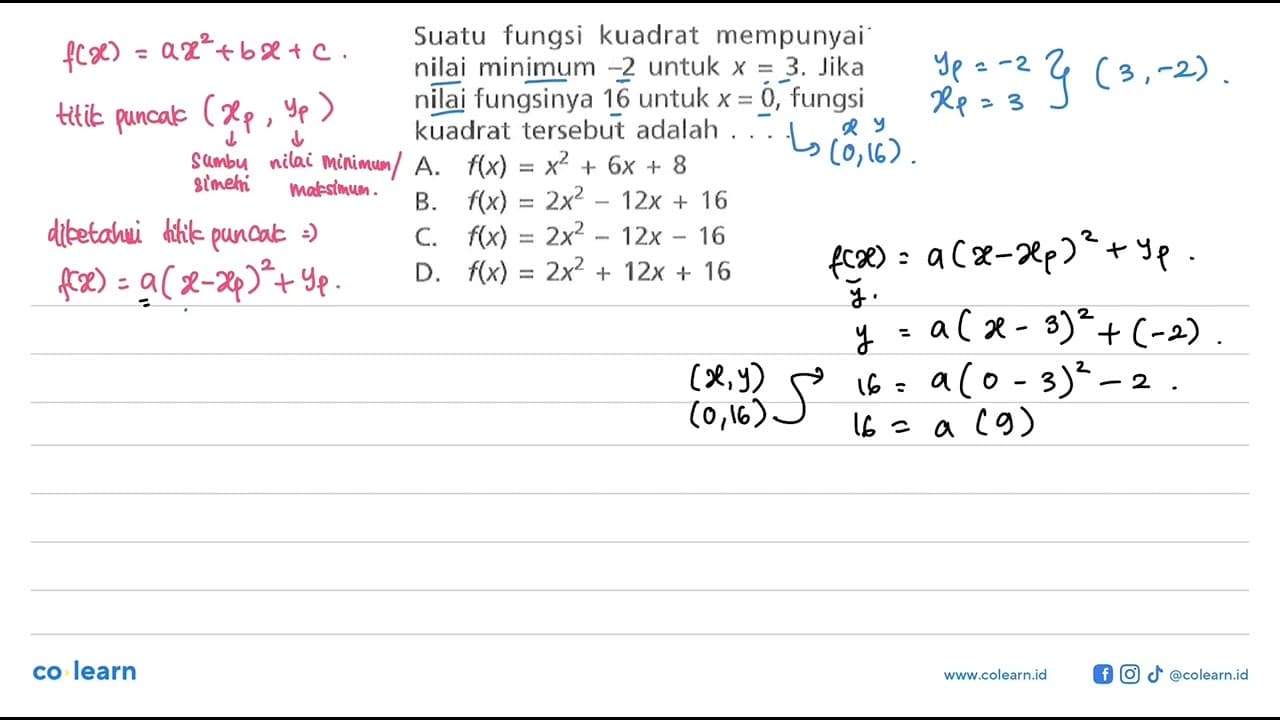 f(x) = ax² + bx + c .
titik puncak (xp , yp)
↓ ↓
Sumbu simetri nilai minimum/ maksimum.
diketahui titik puncak =>
f(x) = a(x-xp)² + yp .
Suatu fungsi kuadrat mempunyai
nilai minimum –2 untuk x = 3. Jika
nilai fungsinya 16 untuk x = 0, fungsi
kuadrat tersebut adalah . . . .
A. f(x) = x² + 6x + 8
B. f(x) = 2x² – 12x + 16
C. f(x) = 2x² – 12x – 16
D. f(x) = 2x² + 12x + 16
yp = -2 } (3, -2) .
xp = 3
x y
(0, 16) .
f(x) = a(x-xp)² + yp .
y.
y = a(x - 3)² + (-2) .
(x, y)
(0, 16)
16 = a(0 - 3)² - 2 .
16 = a (9)
co learn
www.colearn.id
@colearn.id